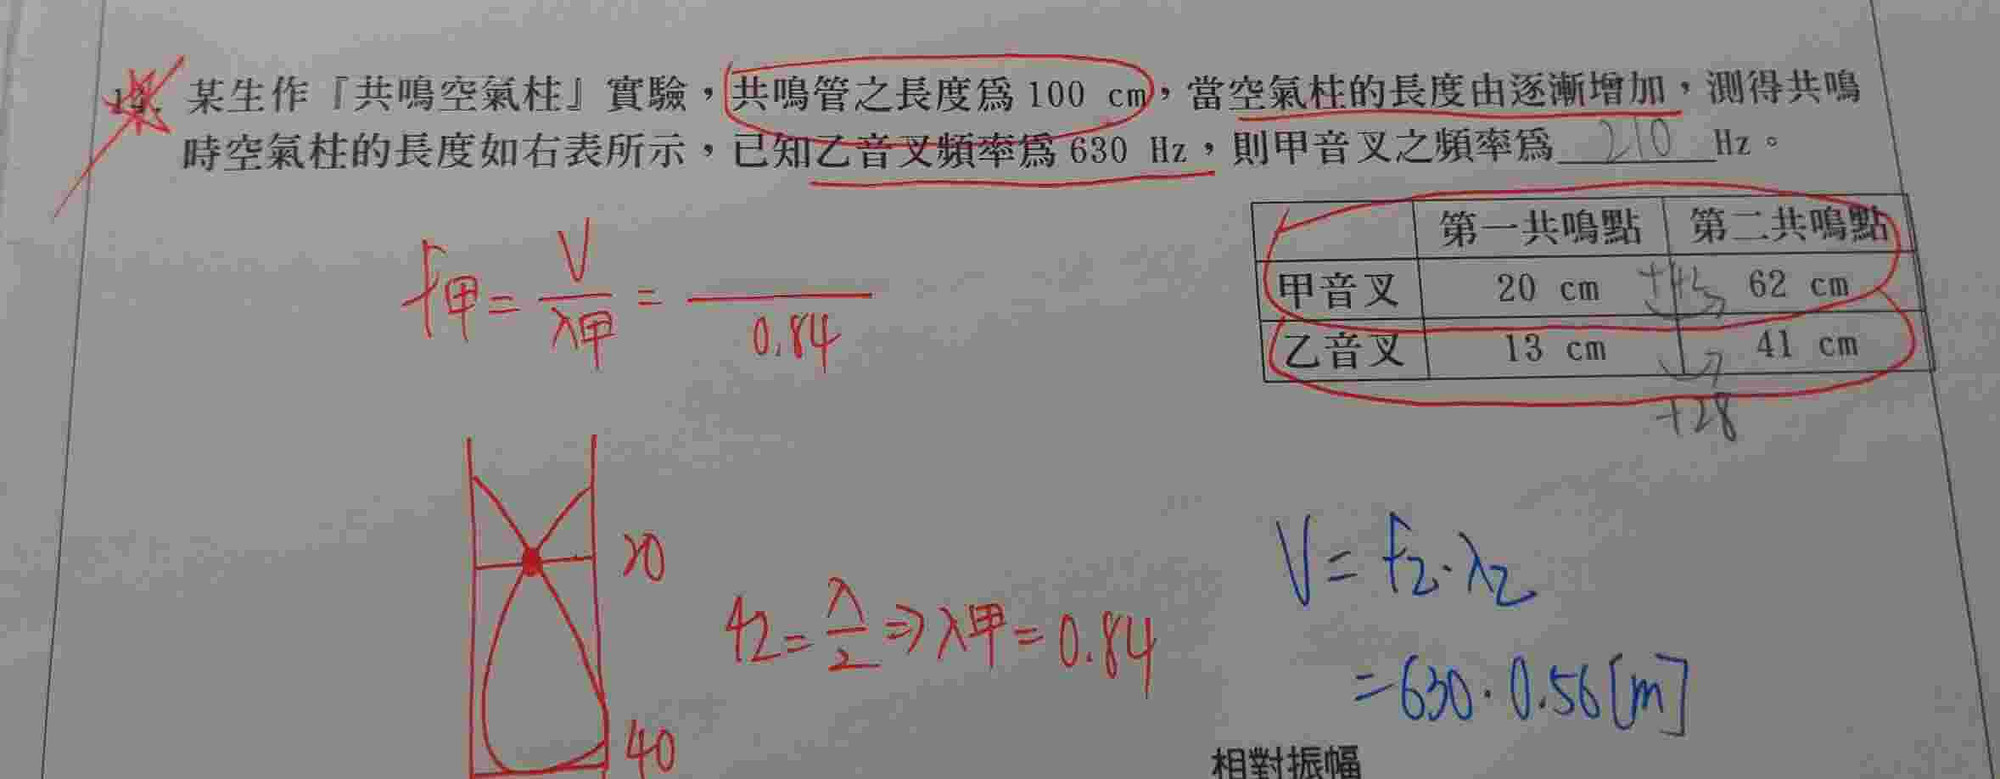 某生作『共鳴空氣柱』實驗，共鳴管之長度為 100 cm，當空氣柱的長度由逐漸增加，測得共鳴
時空氣柱的長度如右表所示，已知乙音叉頻率為 630 Hz，則甲音叉之頻率為 210 Hz。
第一共鳴點 第二共鳴點
甲音叉 20 cm 62 cm
乙音叉 13 cm 41 cm
+28
f甲 = V/λ甲 = /0.84
20
40
42 = λ/2 ⇒ λ甲 = 0.84
V = f乙·λ乙
= 630·0.56[m]
相對振幅